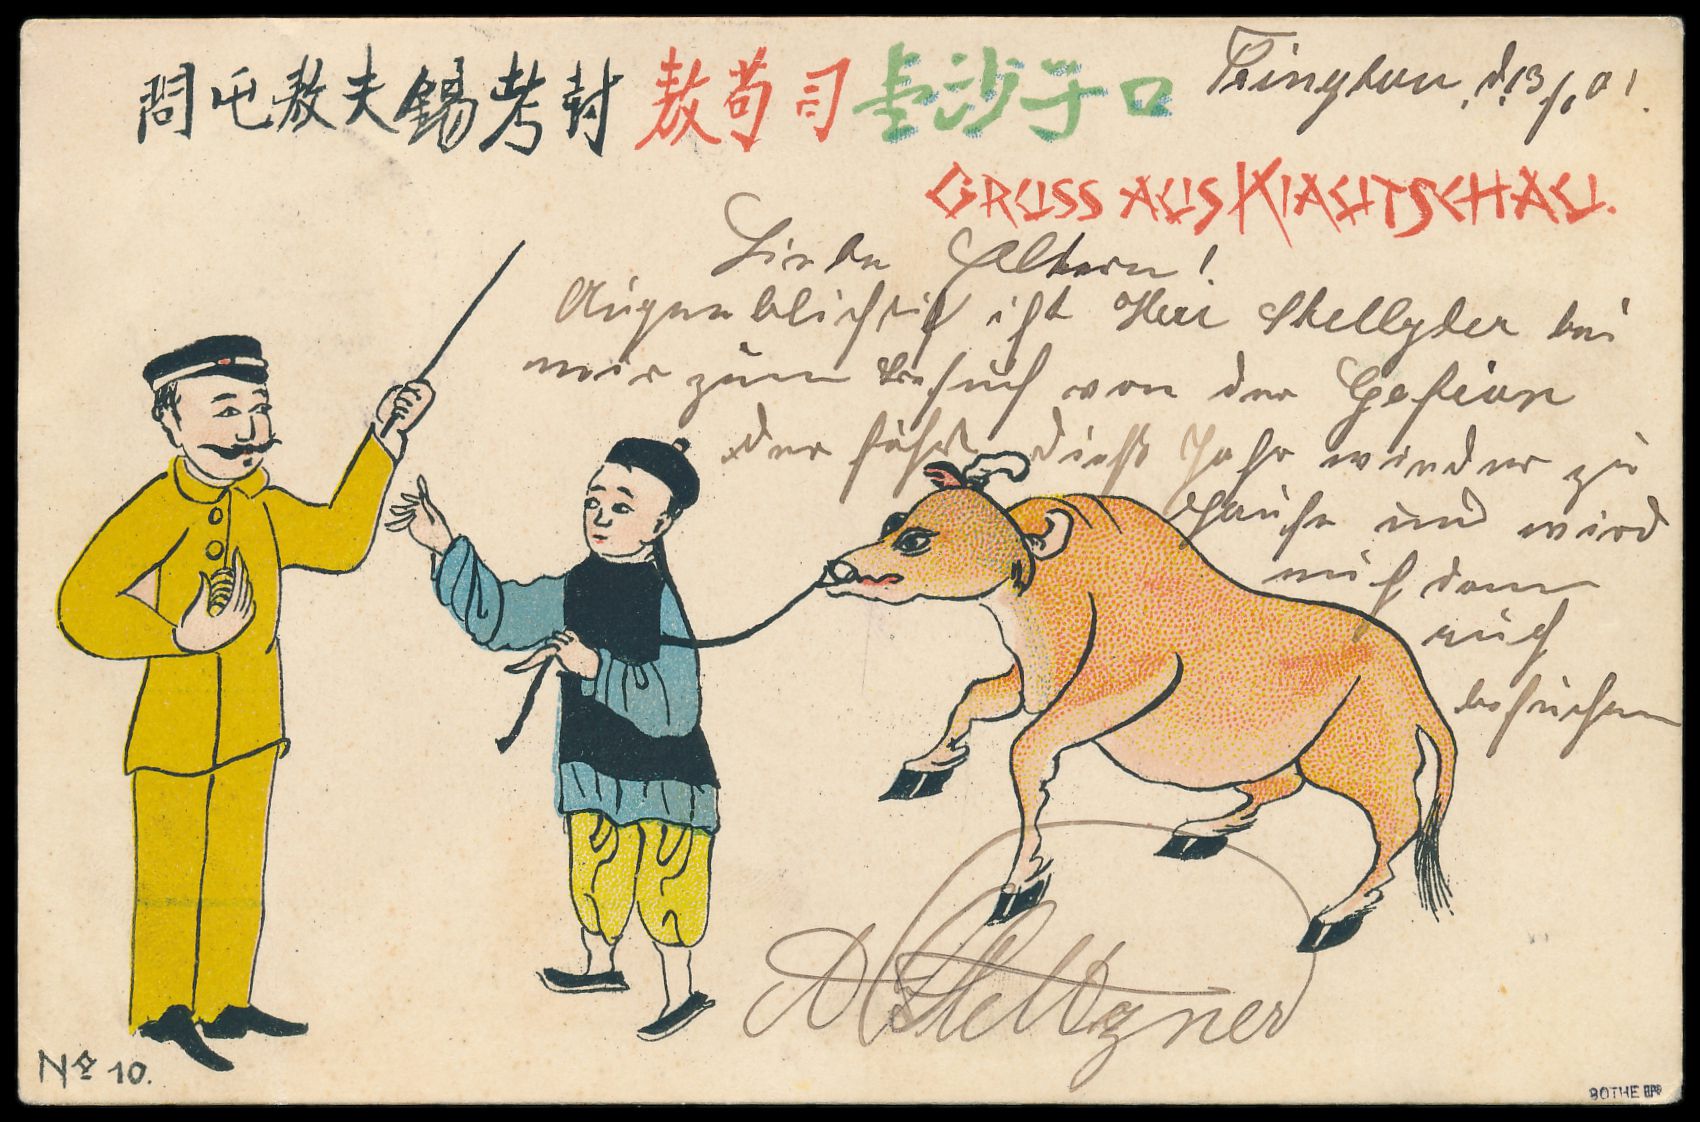 問屯敖夫錫考封 敖苟司 臺沙子口
Tsingtau, d. 13/1. 01.
GRUSS AUS KIAUTSCHAU.
Liebe Eltern!
Augenblicklich ist Herr bei
mir zum Besuch von der Gefion
der fährt dieß Jahr wieder zu
Hause und wird
mich dann
auch
besuchen
No 10.
BOTHE